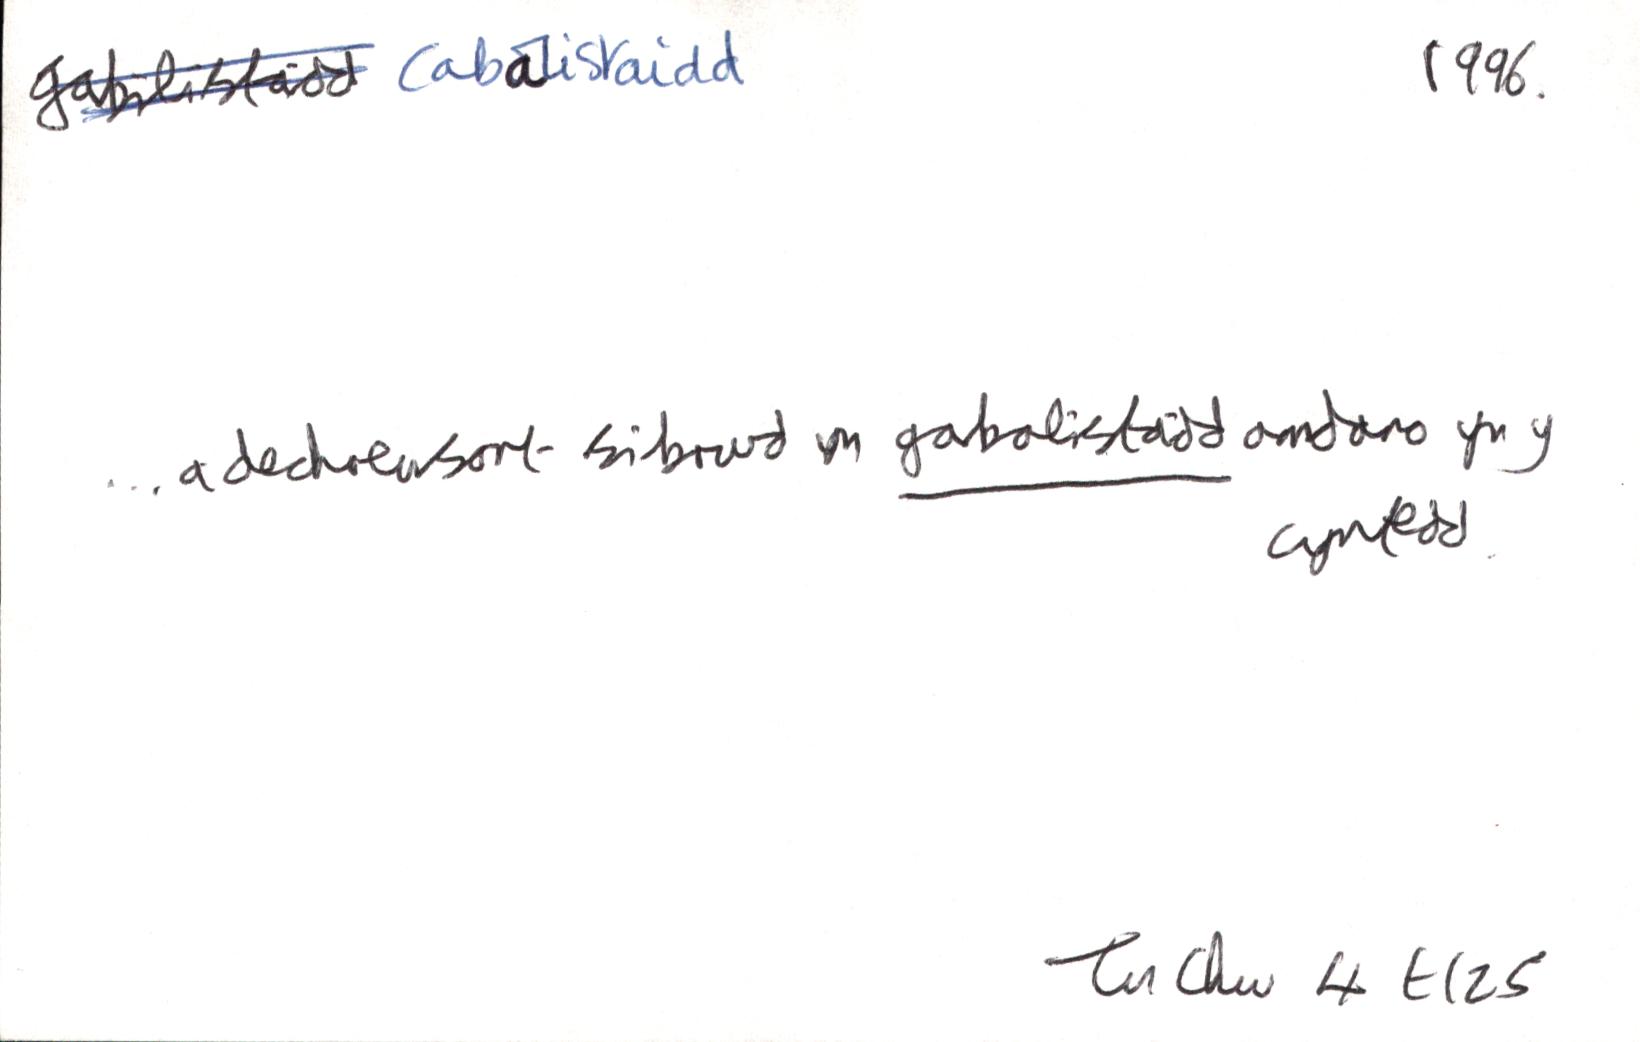 gabilistaidd cabalistaidd 1996.
... a dechreusont sibrwd yn gabalistaidd amdano yn y
cyntedd.
Chw 4 t125